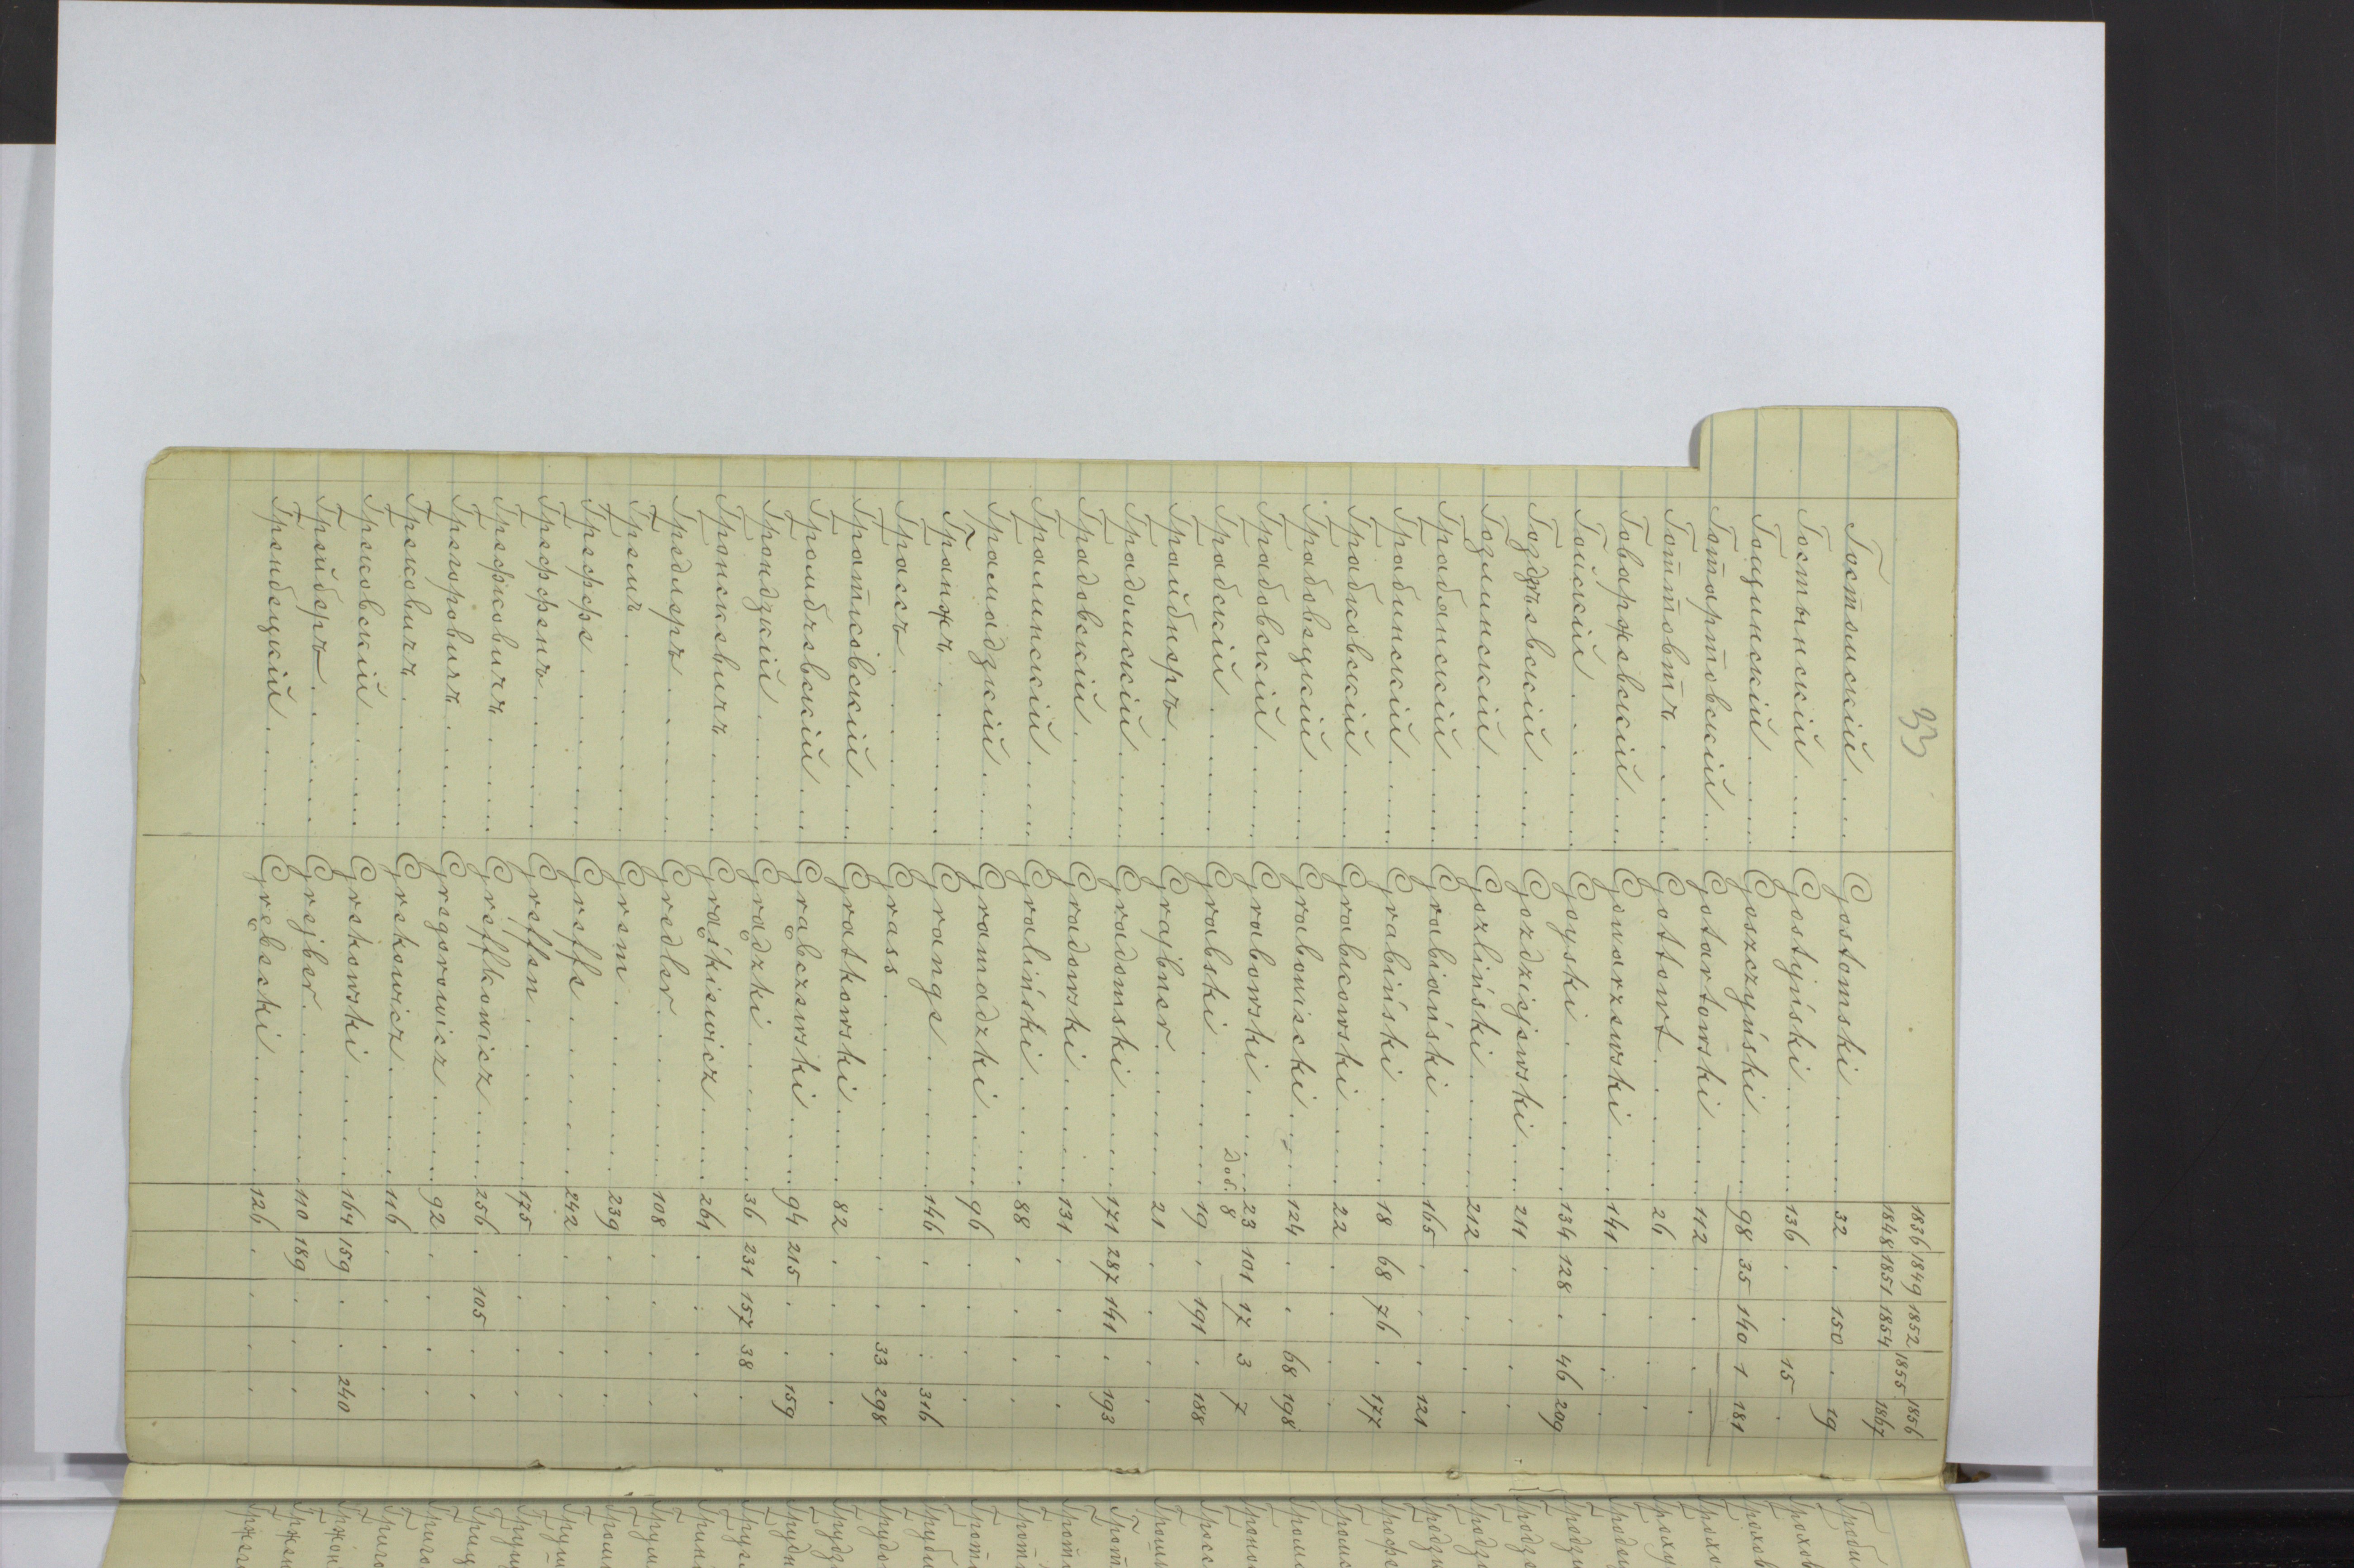 33
1836 1849 1852 1855 1856
1848 1851 1854 1867
Гостомскій . . . . Gostomski . . . . . 32 . 150 . 19
Гостынскій . . . . Gostyński . . . . . 136 . . 15 .
Гощинскій . . . . Goszczyński . . . . 98 35 140 1 181
Готартовскій . . . Gotartowski . . . . 112 . . . .
Готтовтъ . . . . Gottowt . . . . . 26 . . . .
Говаржевскій . . . Gowarzewski . . . . 141 . . . .
Гойскій . . . . . Goyski . . . . . 134 128 . 46 209
Гоздѣевскій . . . . Gozdziejewski . . . 211 . . . .
Гозлинскій . . . . Gozliński . . . . . 212 . . . .
Грабянскій . . . . Grabiański . . . . 165 . . . 121
Грабинскій . . . . Grabiński . . . . . 18 68 76 . 177
Грабковскій . . . . Grabkowski . . . . 22 . . . .
Грабовецкій . . . . Grabowiecki . . . . 124 . . 68 198
Грабовскій . . . . Grabowski . . . . . 23 101 17 3 7
Доб. 8
Грабскій . . . . . Grabski . . . . . 19 . 191 . 188
Грайбнеръ . . . . Grajbner . . . . . 21 . . . .
Градомскій . . . . Gradomski . . . . . 171 287 141 . 193
Градовскій . . . . Gradowski . . . . . 131 . . . .
Гралинскій . . . . Graliński . . . . . 88 . . . .
Грамадзкій . . . . Gramadzki . . . . 96 . . . .
Гранжъ . . . . . Grange . . . . . 146 . . . 316
Грассъ . . . . . Grass . . . . . . . . 33 298
Гратковскій . . . Gratkowski . . . . 82 . . . .
Громбчевскій . . . Grąbczewski . . . . 94 215 . . 159
Грондзкій . . . . Grądzki . . . . . 36 231 157 38 .
Гронскевичъ . . . . Grąśkiewicz . . . . 261 . . . .
Гредлеръ . . . . . Gredler . . . . . 108 . . . .
Гремъ . . . . . Grem . . . . . . 239 . . . .
Греффе . . . . . Greffe . . . . . 242 . . . .
Греффенъ . . . . . Greffen . . . . . 175 . . . .
Грефковичъ . . . . Greffkowicz . . . . 256 . 105 . .
Грегоровичъ . . . . Gregorowicz . . . . 92 . . . .
Грековичъ . . . . Grekowicz . . . . . 116 . . . .
Грековскій . . . . Grekowski . . . . . 164 159 . . 240
Грейберъ . . . . . Grejber . . . . . 110 189 . . .
Грембецкій . . . . Grębecki . . . . . 126 . . . .